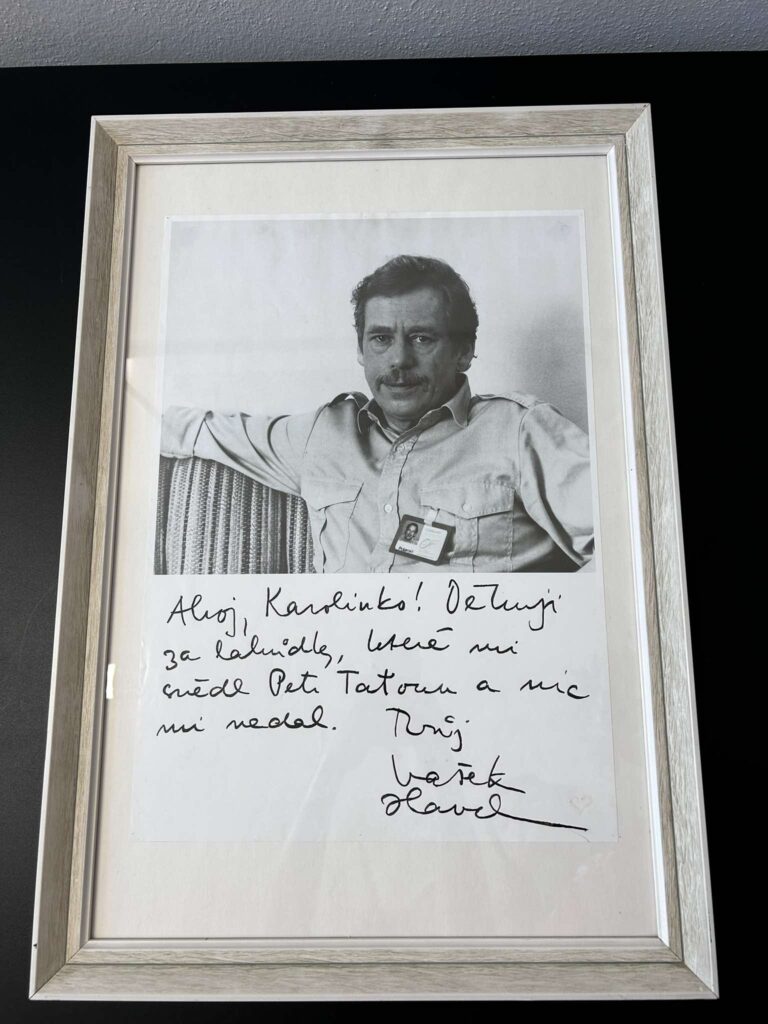 Ahoj, Karolinko! Děkuji
za lahůdky, které mi
snědl Petr Taťoun a nic
mi nedal. Tvůj
Vašek
Havel